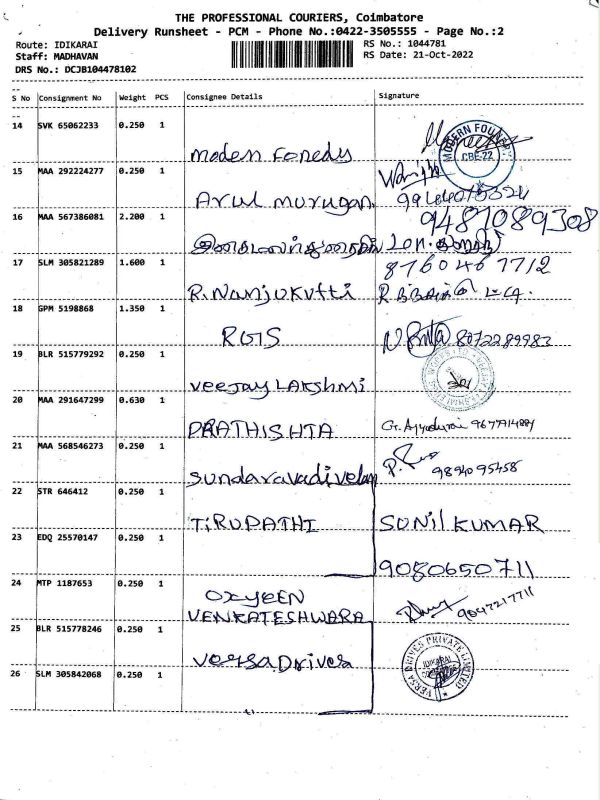 THE PROFESSIONAL COURIERS, Coimbatore
Delivery Runsheet - PCM - Phone No.:0422-3505555 - Page No.:2
Route: IDIKARAI
RS No.: 1044781
Staff: MADHAVAN
RS Date: 21-Oct-2022
DRS No.: DCJB104478102
S No Consignment No Weight PCS Consignee Details Signature
14 SVK 65062233 0.250 1
Modern Foneds
MODERN FOUNDRY
CBE-22
15 MAA 292224277 0.250 1
Arul murugan
16 MAA 567386081 2.200 1
9487089308
17 SLM 305821289 1.600 1
8760467712
R. Nanjukutti
18 GPM 5198868 1.350 1
RGS
8072289983
19 BLR 515779292 0.250 1
Veejay LAKshmi
20 MAA 291647299 0.630 1
PRATHISHTA
21 MAA 568546273 0.250 1
Sundaravadivelan
9894095458
22 STR 646412 0.250 1
TIRUPATHI SUNIL KUMAR
23 EDQ 25570147 0.250 1
9080650711
24 MTP 1187653 0.250 1
OXYGEN
VENKATESHWARA 9047217711
25 BLR 515778246 0.250 1
VersaDrives
VERSA DRIVES PRIVATE LIMITED
IDIKARAI
26 SLM 305842068 0.250 1